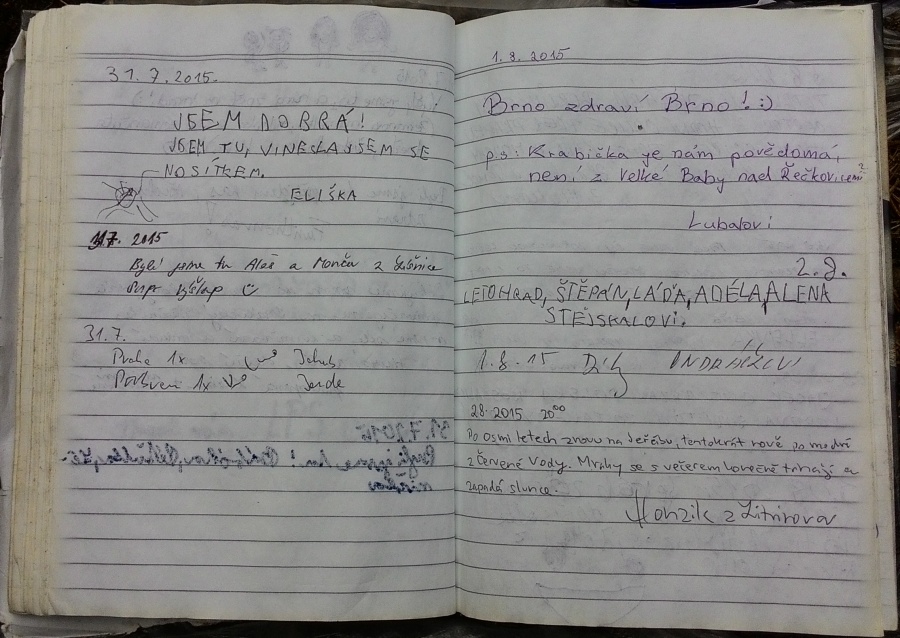 31.7.2015.
JSEM DOBRÁ!
JSEM TU, VINESLA JSEM SE
NOSÍTKEM.
ELIŠKA
31.7. 2015
Byli jsme tu Aleš a Monča z
výšlap
31.7.
Praha 1x Jakub
1x
31.7.2015
1.8.2015
Brno zdraví Brno! :)
p.s.: Krabička je nám povědomá,
není z Velké Baby nad Řečkovicemi?
Lubalovi
2.8.
LETOHRAD, ŠTĚPÁN, LÁĎA, ADÉLA, ALENA
STEJSKALOVI.
1.8.15
28.2015 20⁰⁰
Po osmi letech znovu na Jeřábu, tentokrát nově po modré
z Červené Vody. Mraky se s večerem konečně trhají a
zapadá slunce.
Honzik z Litvínova